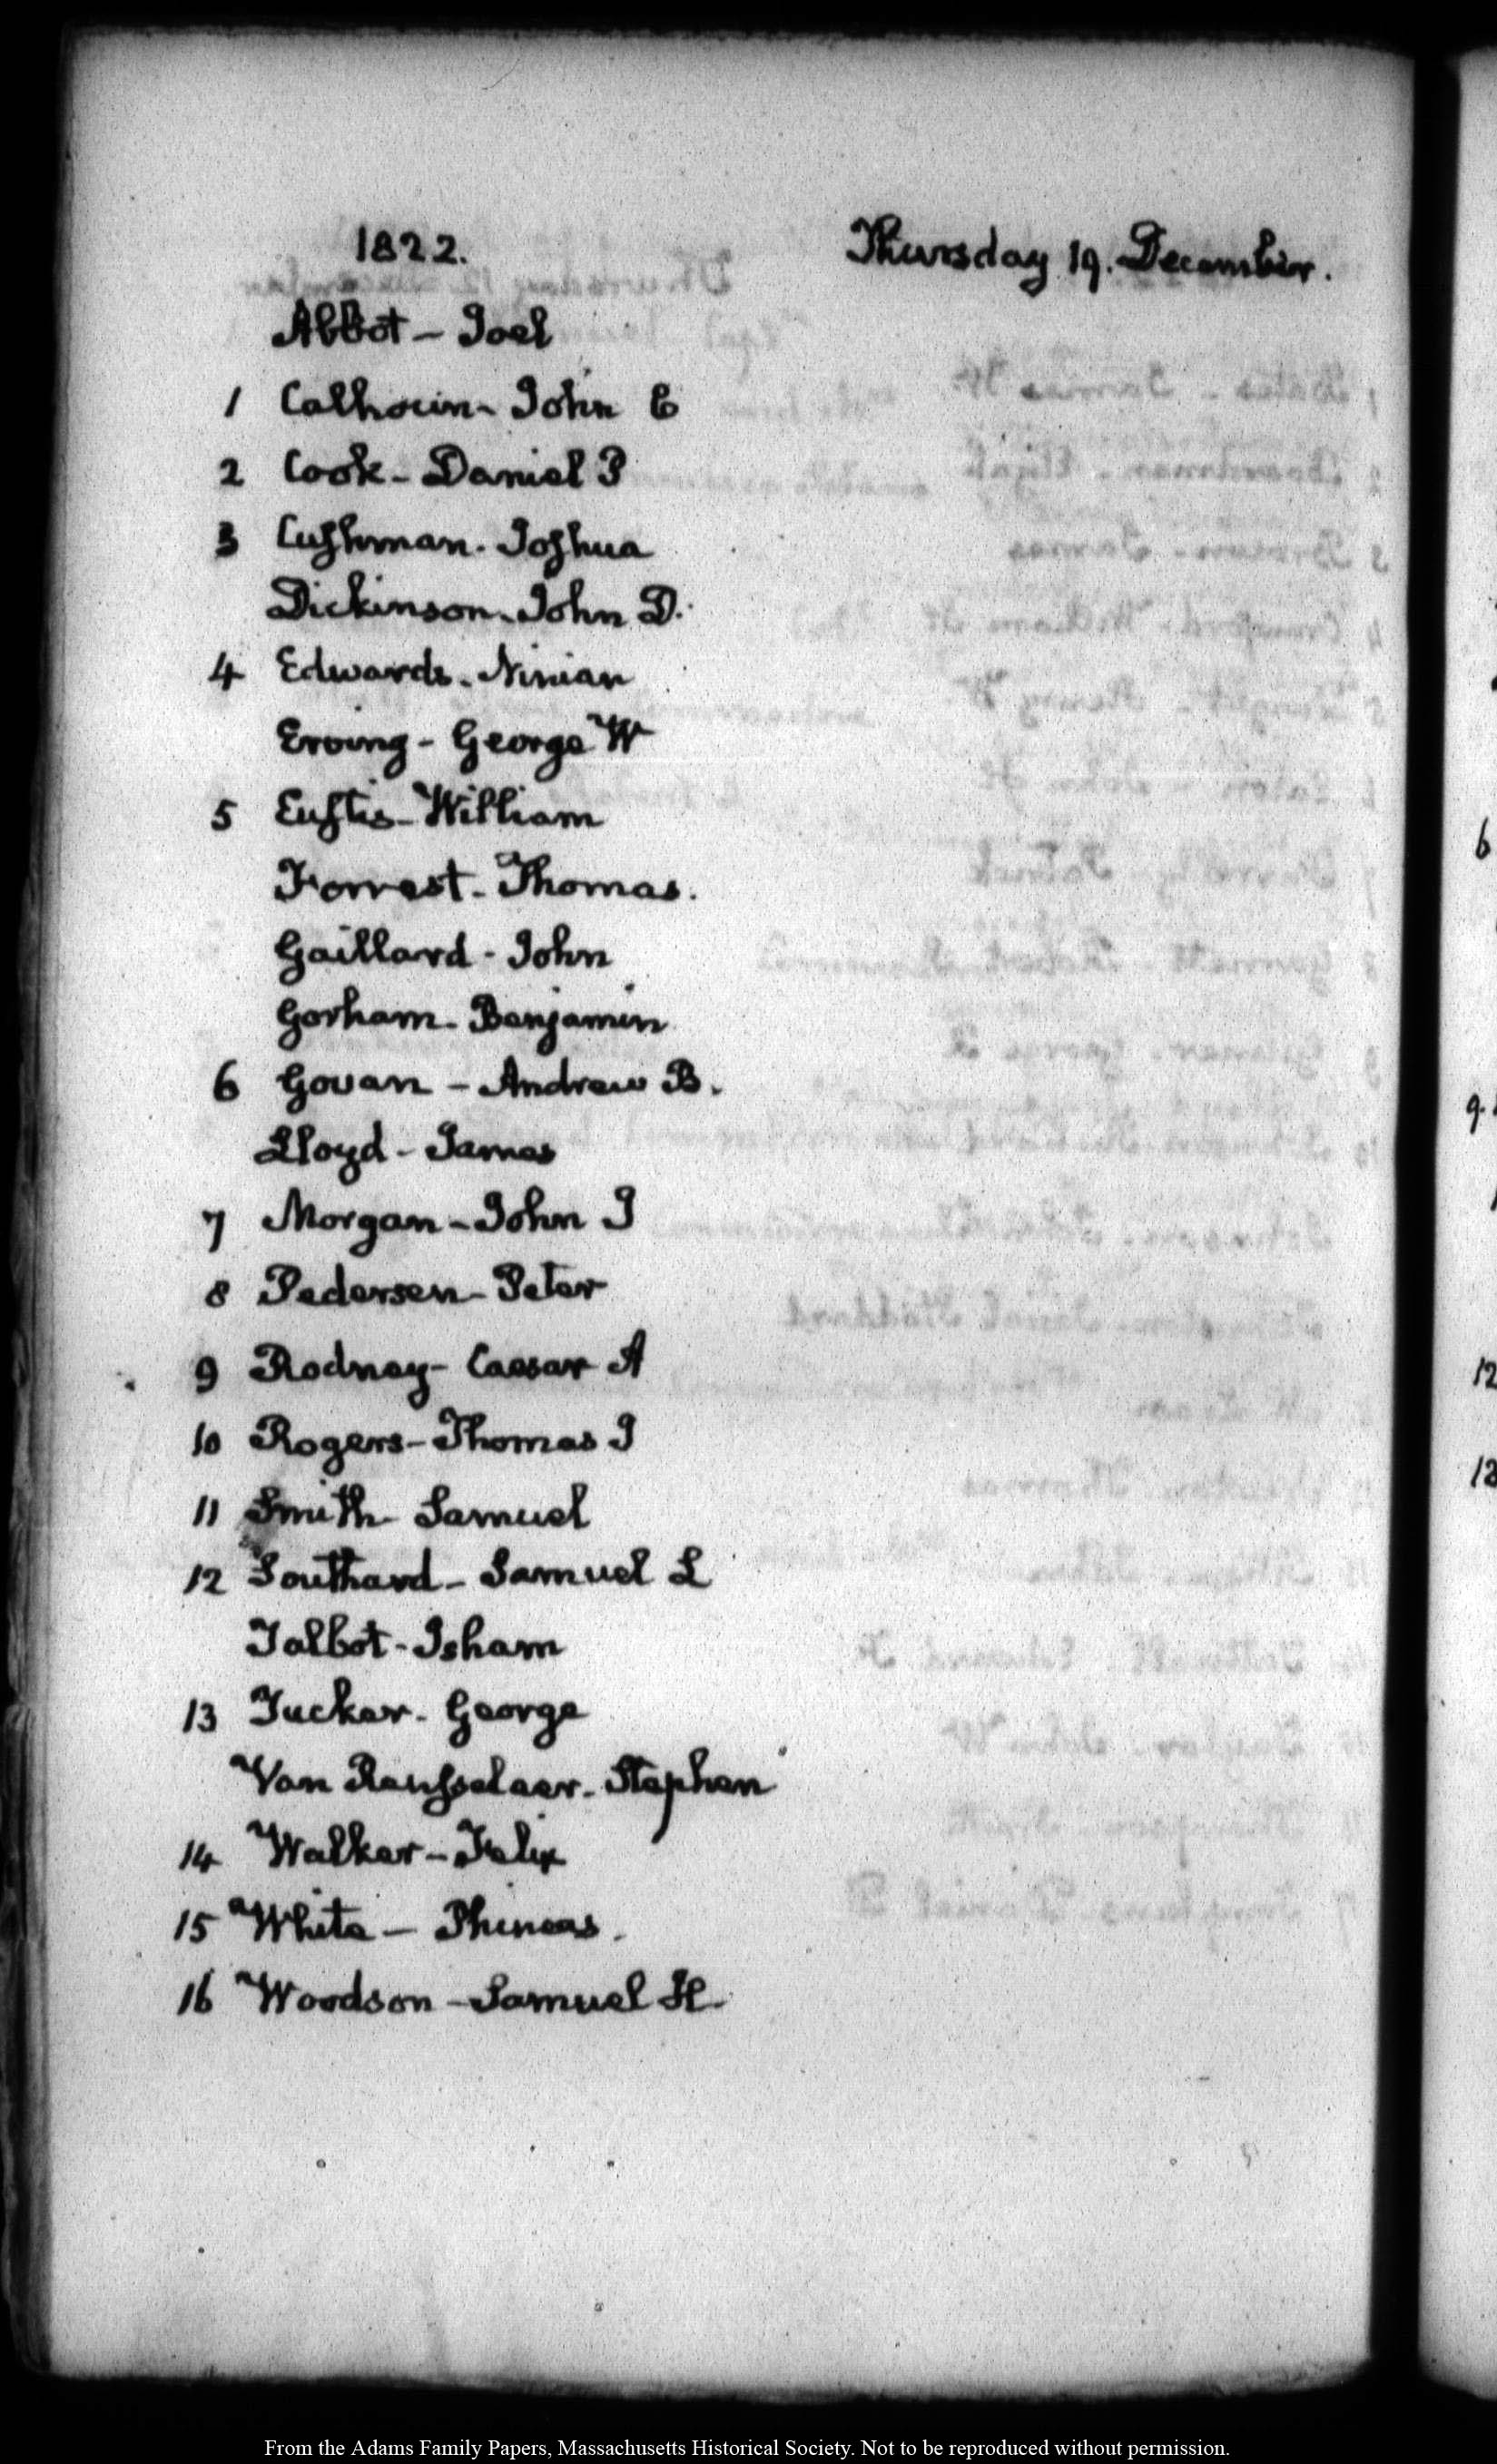 1822. Thursday 19. December.
Abbot - Joel
1 Calhoun - John C
2 Cook - Daniel P
3 Cushman - Joshua
Dickinson - John D.
4 Edwards - Ninian
Erving - George W
5 Eustis - William
Forrest - Thomas.
Gaillard - John
Gorham - Benjamin
6 Govan - Andrew B.
Lloyd - James
7 Morgan - John J
8 Pedersen - Peter
9 Rodney - Caesar A
10 Rogers - Thomas J
11 Smith - Samuel
12 Southard - Samuel L
Talbot - Isham
13 Tucker - George
Van Rensselaer - Stephen
14 Walker - Felix
15 White - Phineas.
16 Woodson - Samuel H.
6
9.
12
13
From the Adams Family Papers, Massachusetts Historical Society. Not to be reproduced without permission.